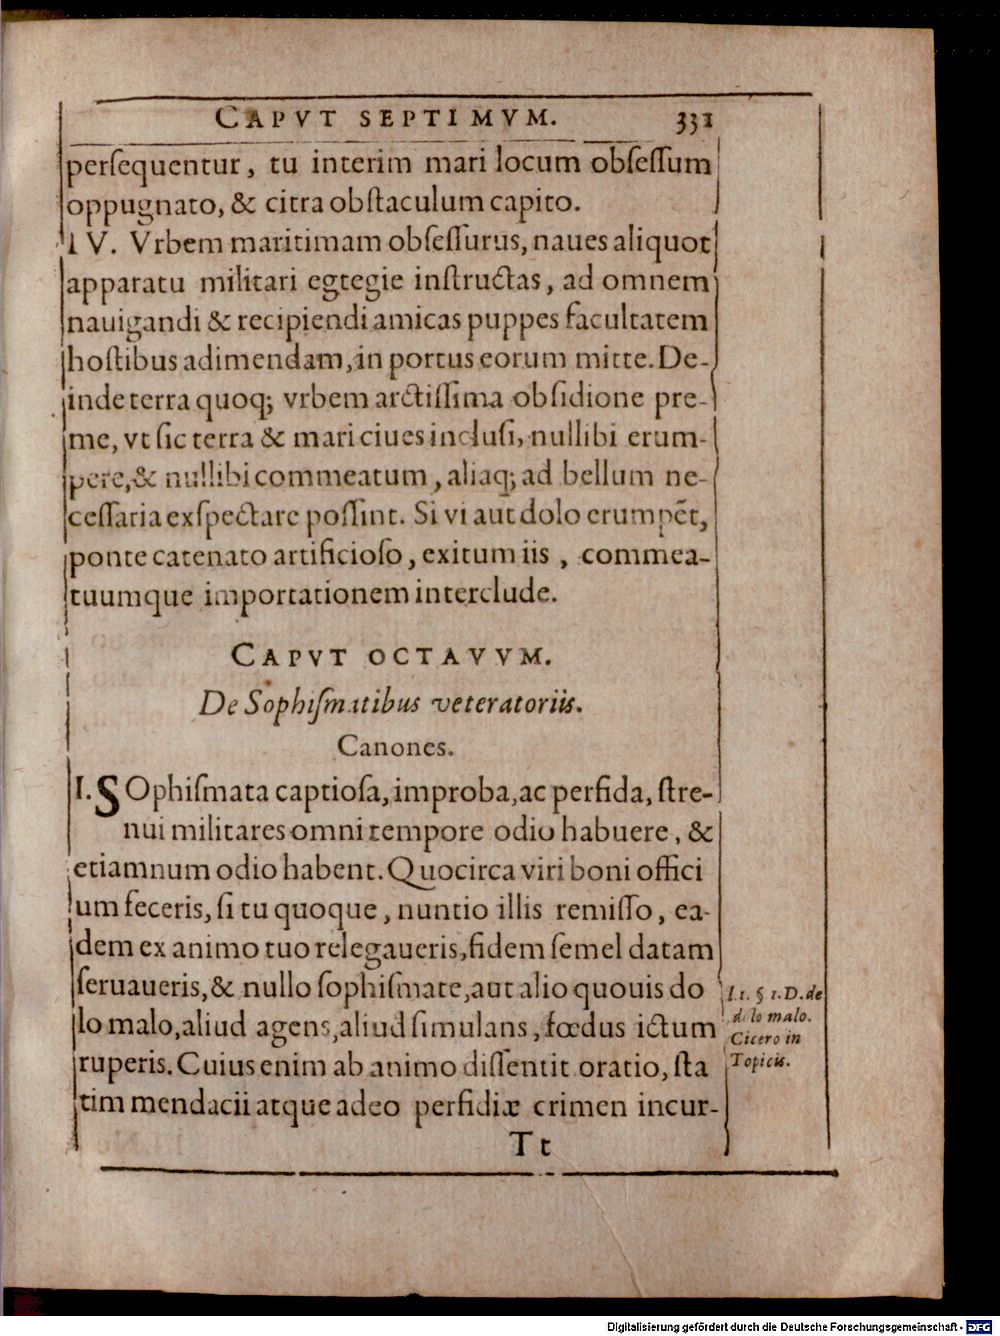 CAPVT SEPTIMVM. 331
perſequentur, tu interim mari locum obſeſſum
oppugnato, & citra obſtaculum capito.
IV. Vrbem maritimam obſeſſurus, naues aliquot
apparatu militari egtegie inſtructas, ad omnem
nauigandi & recipiendi amicas puppes facultatem
hoſtibus adimendam, in portus eorum mitte. De-
inde terra quoq; vrbem arctiſſima obſidione pre-
me, vt ſic terra & mari ciues incluſi, nullibi erum-
pere, & nullibi commeatum, aliaq; ad bellum ne-
ceſſaria exſpectare poſſint. Si vi aut dolo erumpēt,
ponte catenato artificioſo, exitum iis, commea-
tuumque importationem interclude.
CAPVT OCTAVVM.
De Sophiſmatibus veteratoriis.
Canones.
I. SOphiſmata captioſa, improba, ac perfida, ſtre-
nui militares omni tempore odio habuere, &
etiamnum odio habent. Quocirca viri boni offici
um feceris, ſi tu quoque, nuntio illis remiſſo, ea-
dem ex animo tuo relegaueris, fidem ſemel datam
ſeruaueris, & nullo ſophiſmate, aut alio quouis do
lo malo, aliud agens, aliud ſimulans, fœdus ictum
ruperis. Cuius enim ab animo diſſentit oratio, ſta
tim mendacii atque adeo perfidiæ crimen incur-
l. 1. § 1. D. de
dolo malo.
Cicero in
Topicis.
Tt
Digitalisierung gefördert durch die Deutsche Forschungsgemeinschaft - DFG